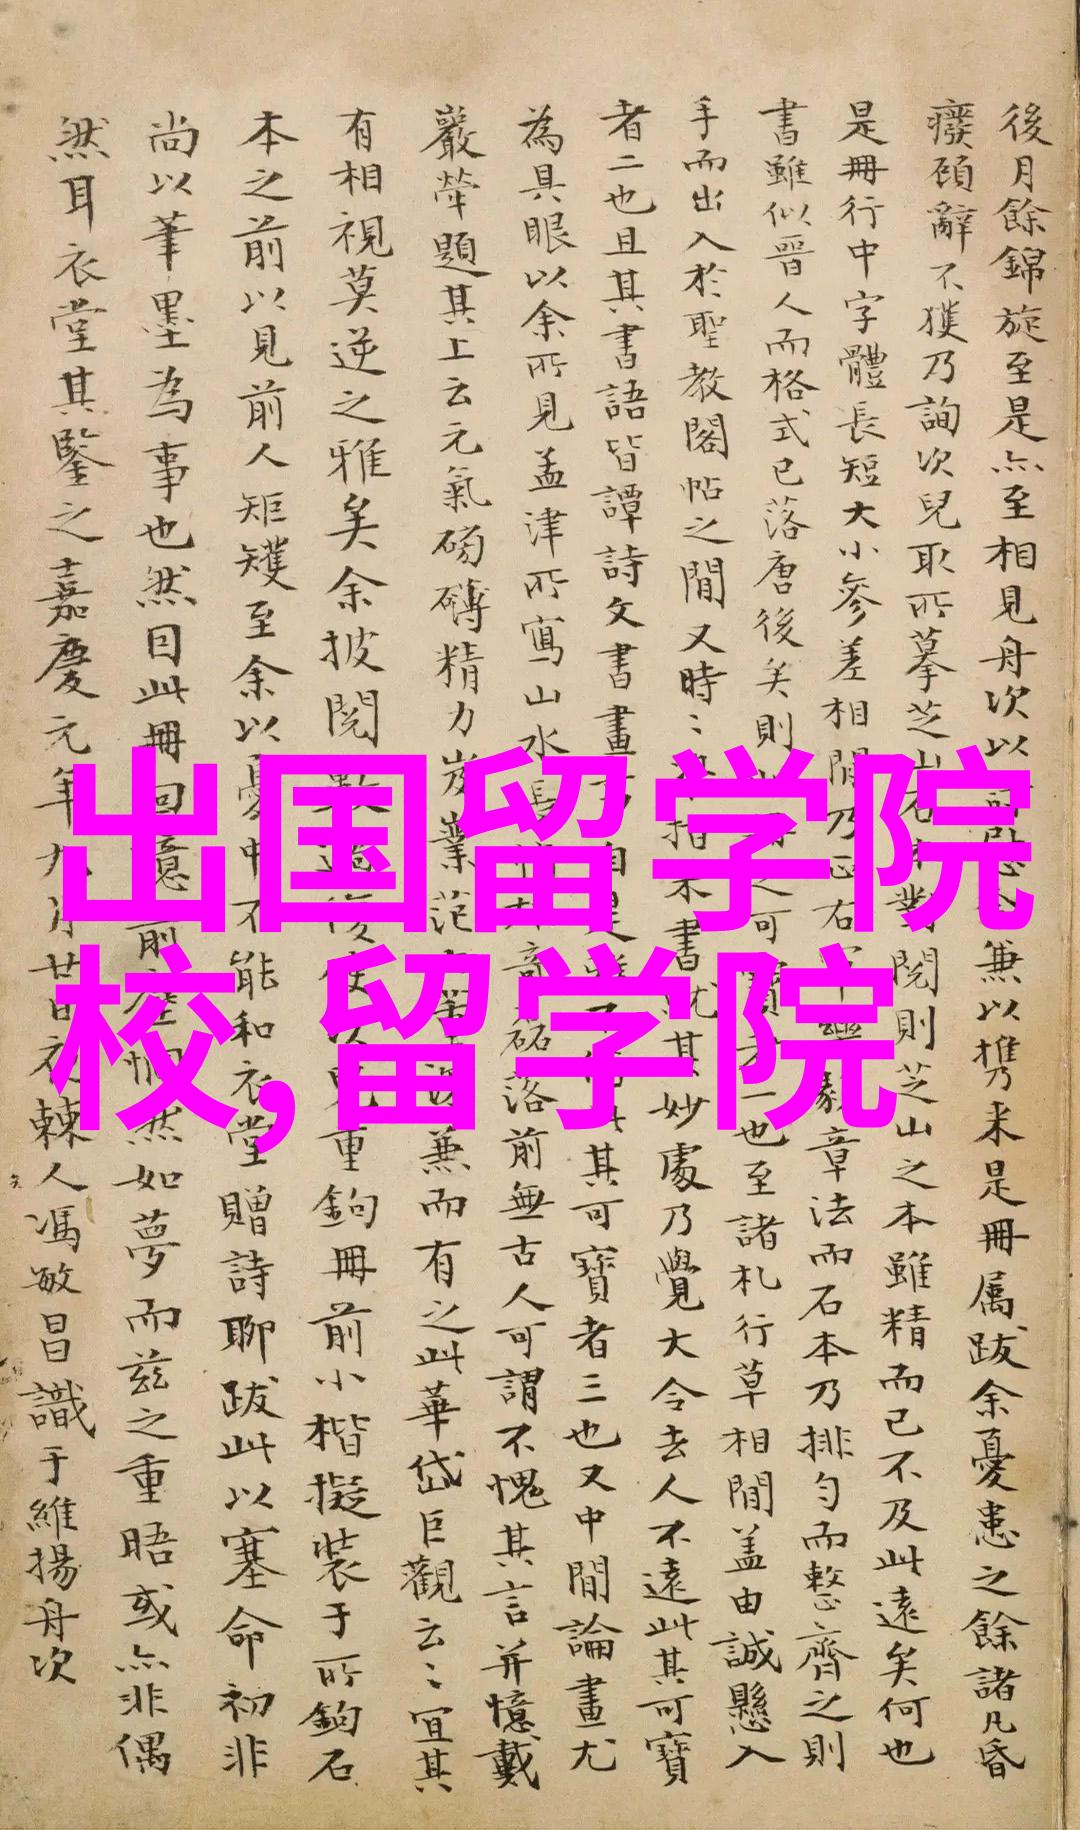 後月餘錦旋至是亦至相見舟次以
兼以携来是冊屬跋余憂患之餘諸凡昏
癈頎辭不獲乃詢次兒取所摹芝山石本對閱則芝山之本雖精而已不及此遠矣何也
是冊行中字體長短大小參差相間乃正右軍
章法而石本乃排勻而整齊之則
書雖似晉人而格式已落唐後矣則
之可寶者一也至諸札行草相間盖由誠懸入
手而出入於聖教閣帖之間又時〻
書就其妙處乃覺大令去人不遠此其可寶
者二也且其書語皆譚詩文書畫
其可寶者三也又中間論畫尤
為具眼以余所見孟津所寫山水
奇磊落前無古人可謂不愧其言并憶戴
巖犖題其上云元氣磅礴精力
兼而有之此華岱巨觀云〻宜其
有相視莫逆之雅矣余披閱數過
重鉤冊前小楷擬裝于所鉤石
本之前以見前人矩矱至余以憂中不能和衣堂贈詩聊跋此以塞命初非
尚以筆墨為事也然因此冊回憶前塵惘然如夢而兹之重晤或亦非偶
然耳衣堂其鑒之嘉慶元年九月廿日衣棘人馮敏昌識于維揚舟次
出国留学院
校,留学院